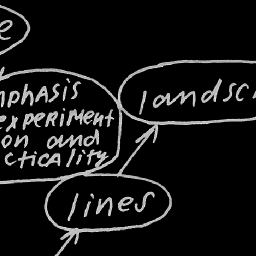 e
mphasis
experiment
on and
cticality
landsc
lines